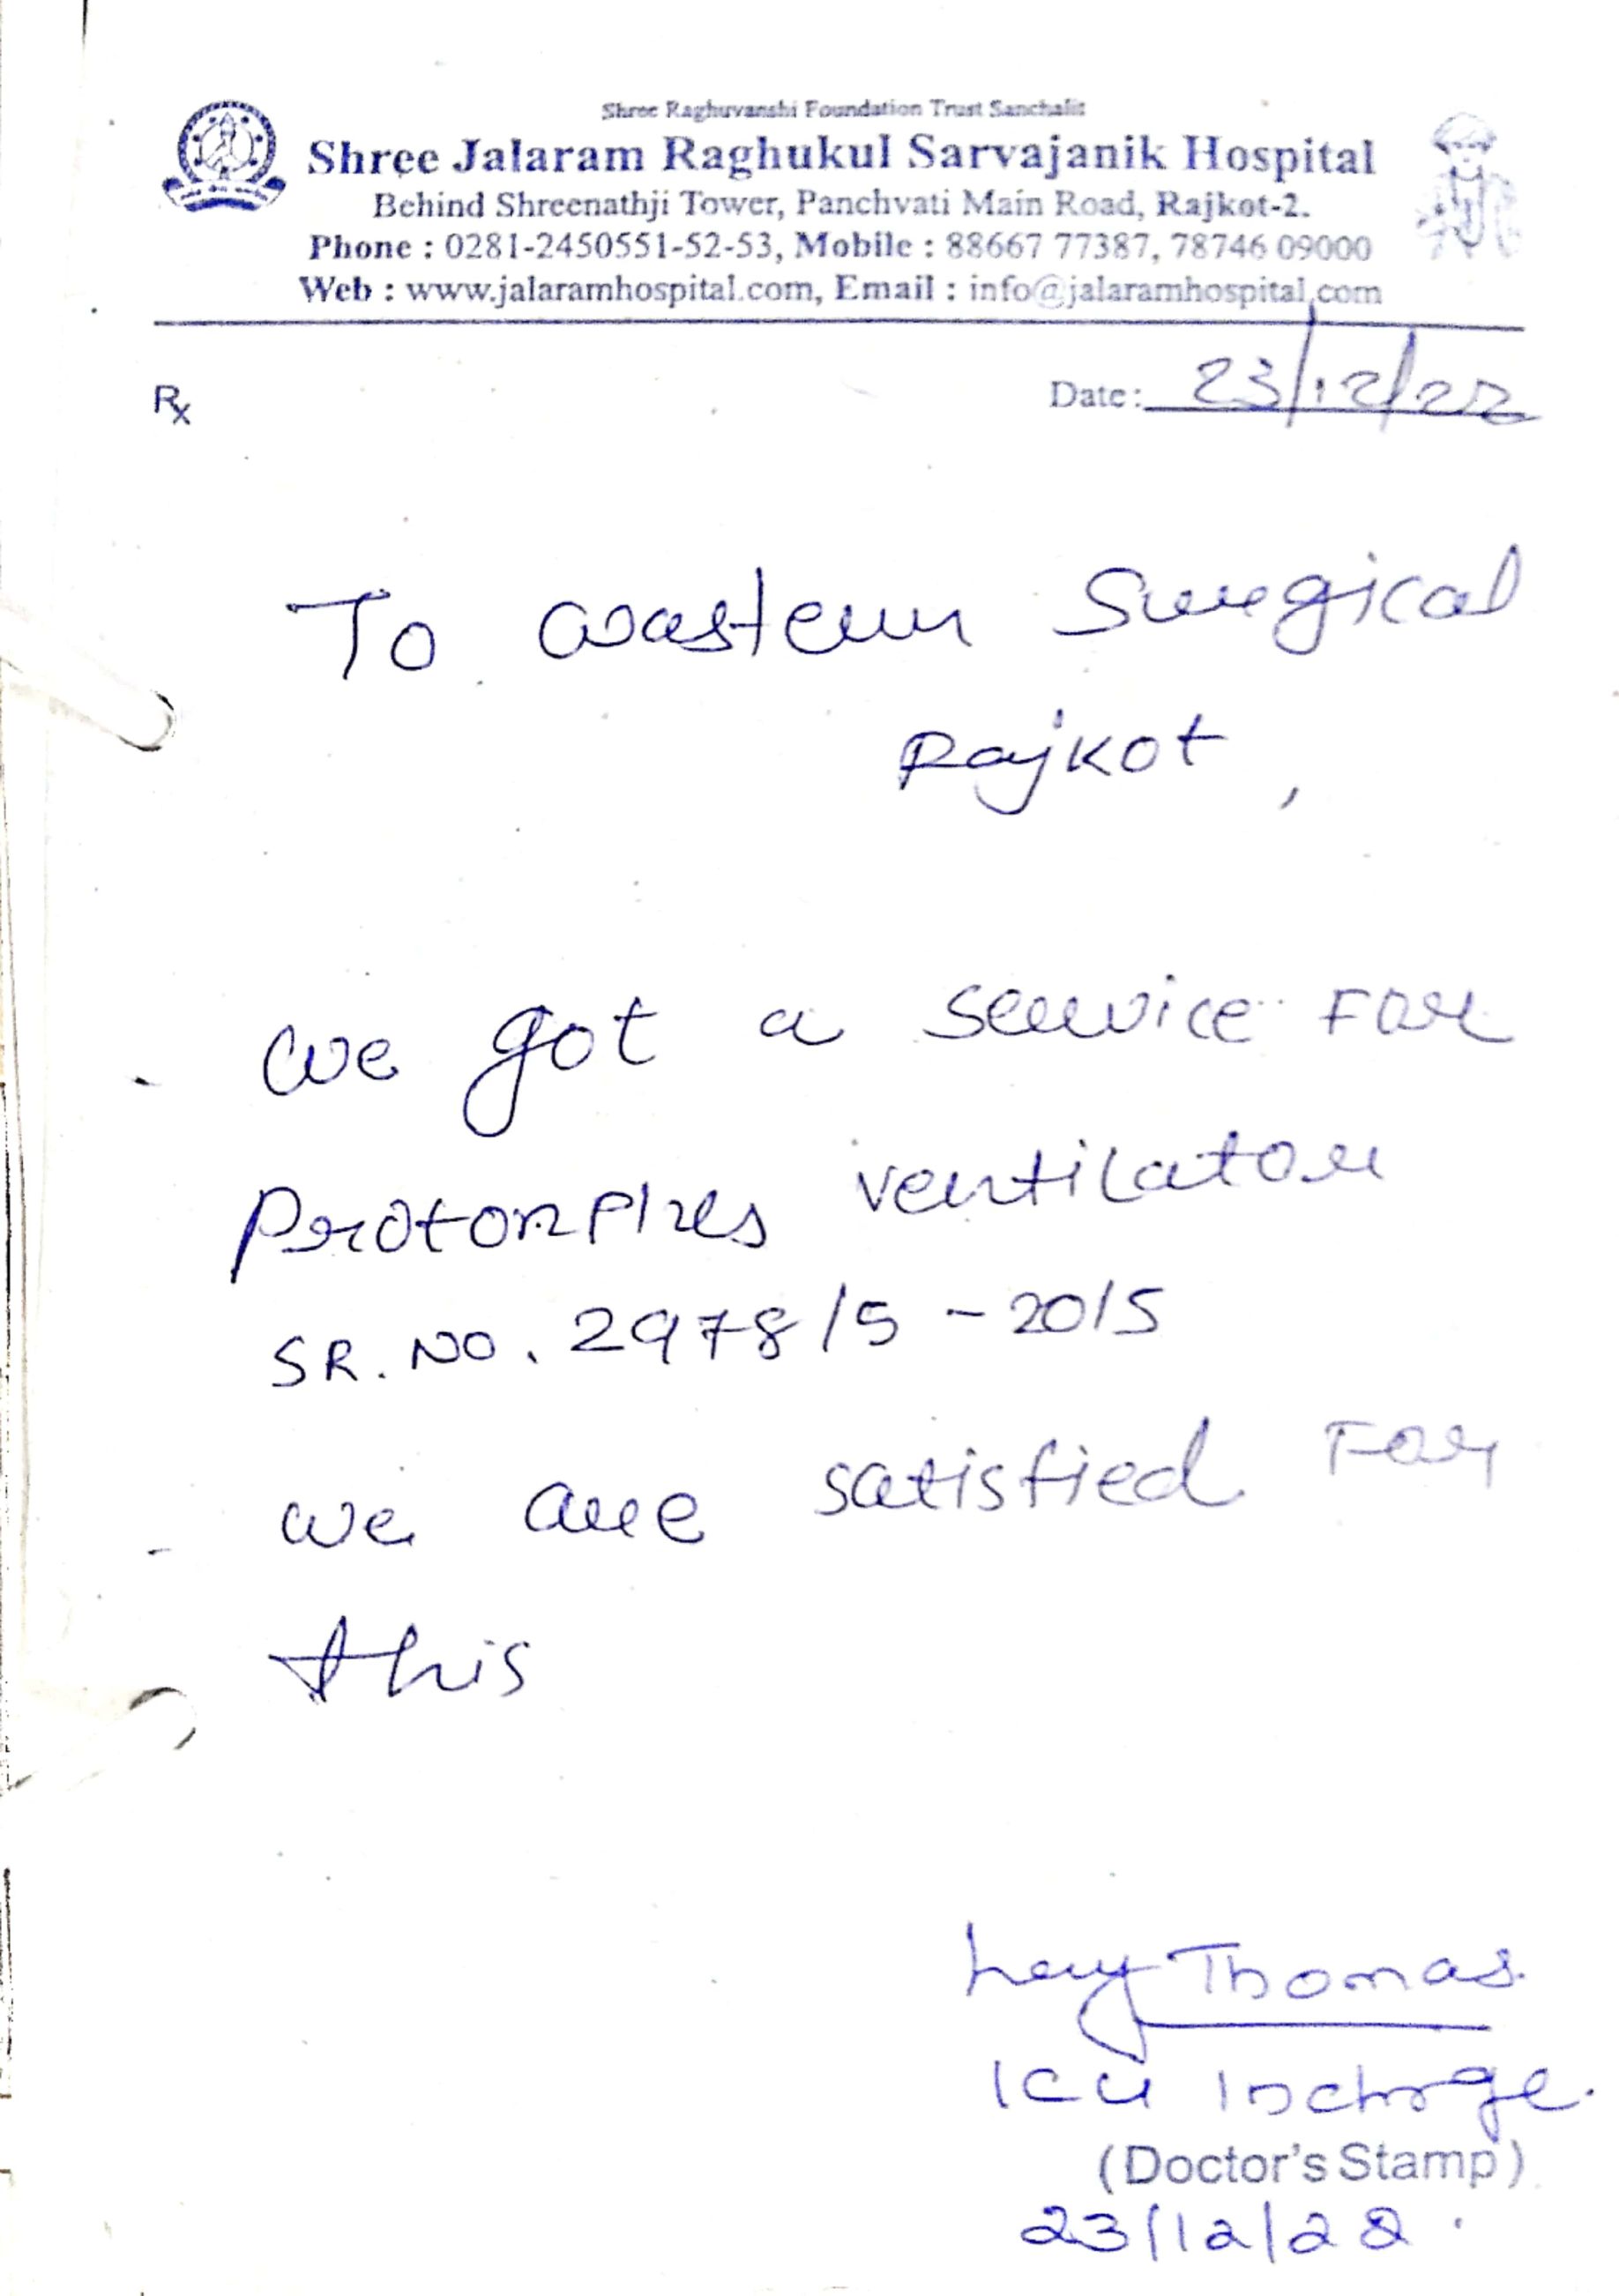 Shree Raghuvanshi Foundation Trust Sanchalit
Shree Jalaram Raghukul Sarvajanik Hospital
Behind Shreenathji Tower, Panchvati Main Road, Rajkot-2.
Phone : 0281-2450551-52-53, Mobile : 88667 77387, 78746 09000
Web : www.jalaramhospital.com, Email : info@jalaramhospital.com
Rx
Date: 23/12/22
To wastern Surgical
Rajkot,
- we got a service For
Protonplus ventilator
SR. NO. 2978/5-2015
- we are satisfied For
this
Thomas.
ICU Incharge.
(Doctor's Stamp)
23/12/22.